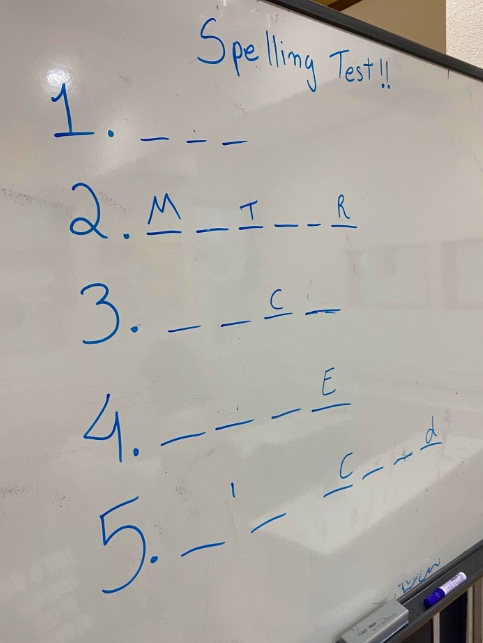 Spelling Test!!
1. _ _ _
2. M _ T _ _ R
3. _ _ C _
4. _ _ _ E
5. _ ' _ C _ _ d